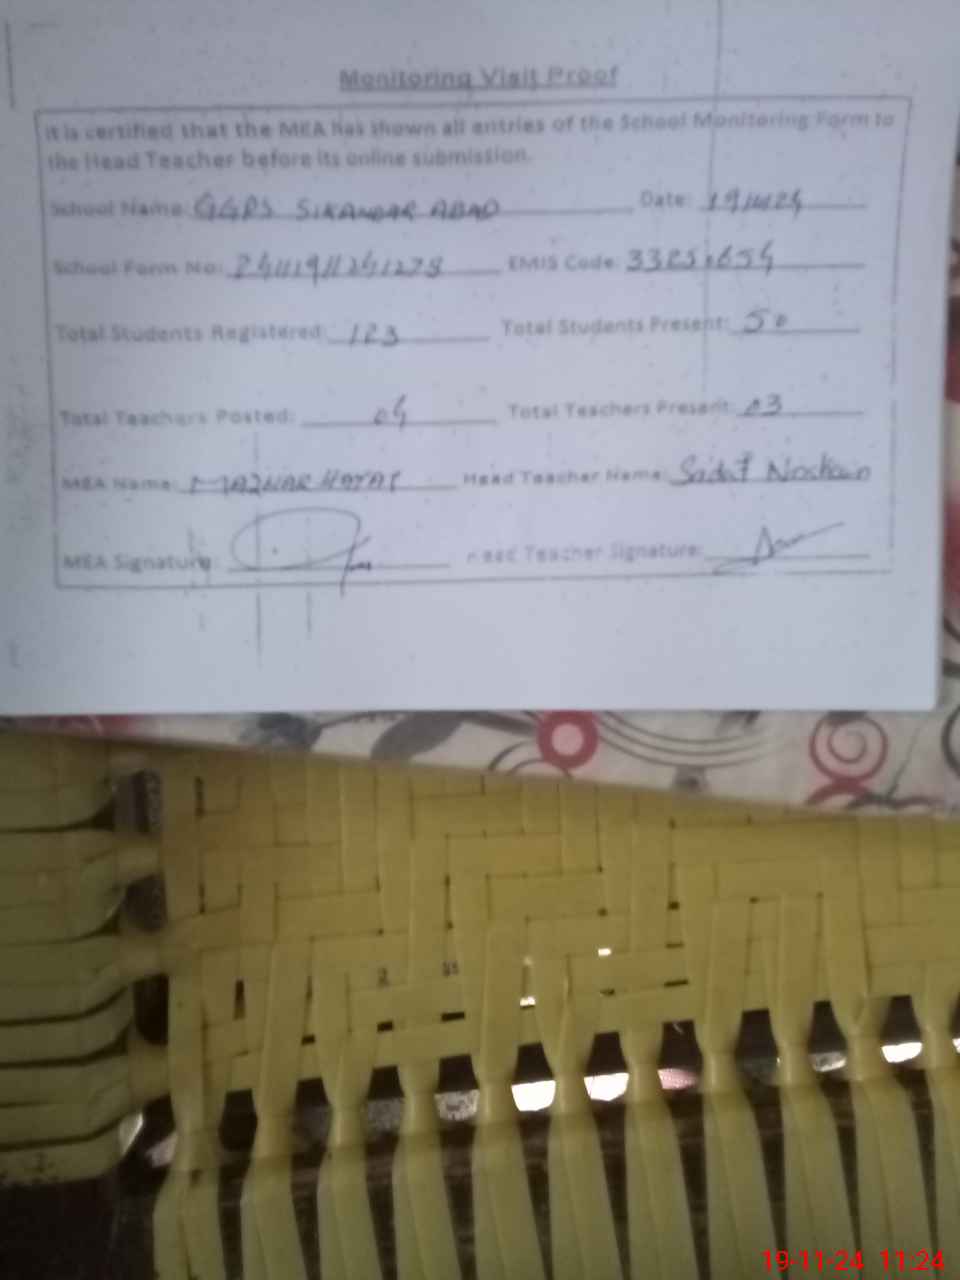 Monitoring Visit Proof
It is certified that the MEA has shown all entries of the School Monitoring Form to
the Head Teacher before its online submission.
School Name: GGPS SIKANDAR ABAD Date: 191124
School Form No: EMIS Code:
Total Students Registered: 123 Total Students Present: 50
Total Teachers Posted: 04 Total Teachers Present: 03
MEA Name: MAZHAR HAYAT Head Teacher Name: Sadaf
MEA Signature: Head Teacher Signature:
19-11-24 11:24